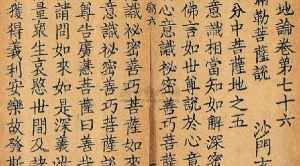 地論卷第七十六
勒菩薩說 沙門
分中菩薩地之五
意識相當知如解深密
佛言世尊如世尊說於心意
識祕密善巧菩薩
心意識祕密善巧菩薩摩訶
識祕密善巧菩薩
尊告廣慧菩薩曰善
請問如來如是深義
量眾生哀愍世間及
獲得義利安樂故發斯